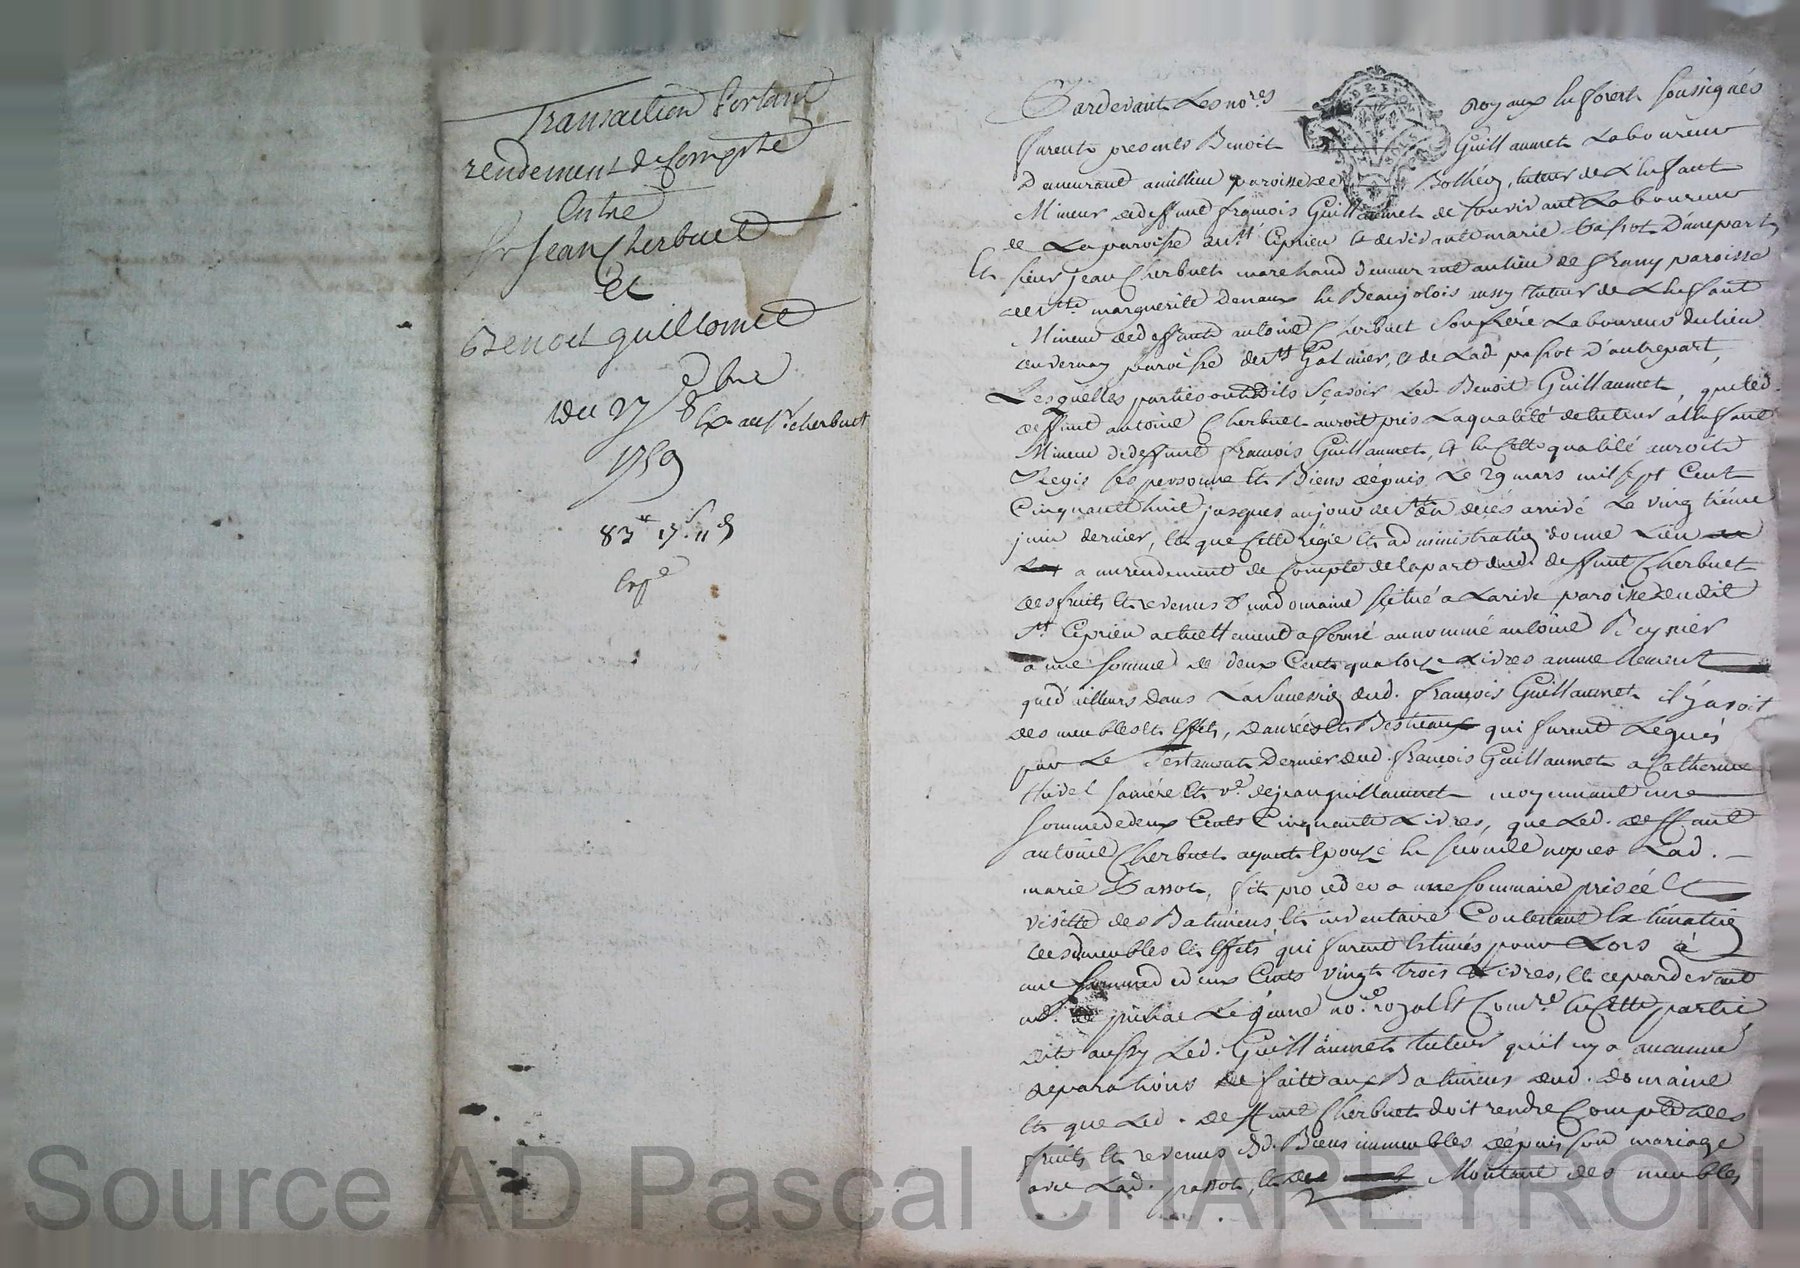 Transaction Portant
rendement de Compte
Entre
Sr Jean Cherbuet
et
Benoit guillomet
du 27 8bre
Ex. au sr. cherbuet
1759
83 17 11
Exp.e
Pardevant Les no.res royaux en forest soussignés
furent presents Benoit Guillaumet Laboureur
Demeurant au lieu paroisse de Bothéon, tuteur de L'enfant
Mineur de deffunt françois Guillaumet de son vivant Laboureur
de La paroisse de St. Ciprien et de vivante marie Passot D'une part,
Et sieur jean Cherbuet marchand demeurant au lieu de frany paroisse
de Ste. marguerite Denaux En Beaujolois aussy tuteur de L'enfant
Mineur de deffunt antoine Cherbuet Son frére Laboureur du lieu
du vernay paroisse de St Galmier, et de Lad. passot D'autre part,
Lesquelles parties ont Dits Sçavoir Led. Benoit Guillaumet, que led.
deffunt antoine Cherbuet auroit pris La qualité de tuteur à l'Enfant
Mineur de deffunt françois Guillaumet, et En Cette qualité auroit
Régis ses personne Et Biens dépuis Le 29 mars mil sept Cent
Cinquante huit jusques au jour de son décès arrivé Le vingtiéme
juin dernier, Et que Cette régie Et administration donne Lieu
a un rendement de Compte de la part dud. deffunt Cherbuet
des fruits Et revenus d'un domaine scitué a Larive paroisse dudit
St. Ciprien actuellement affermé au nommé antoine Reynier
a une somme de deux Cents quatorze Livres annuellement
qued'ailleurs dans La Succession dud. françois Guillaumet il y avoit
des meubles Et Effets, danrées Et Bestiaux qui furent Legués
par Le Testament Dernier dud. françois Guillaumet a Catherine
thivel sa mére Et ve. de jean guillaumet moyennant une
somme de deux Cents Cinquante Livres, que Led. deffunt
antoine Cherbuet ayant Epousé En secondes nopces Lad.
marie Passot, fit proceder a une sommaire prisée Et
visitte des Batimens Et inventaire Contenant Estimation
des meubles Et Effets qui furent Estimés pour Lors à
une somme de deux Cents vingt trois Livres, Et ce pardevant
Le jeune no.re royal Et Com.re En Cette partie
dit aussy Led. Guillaumet tuteur qu'il n'y a aucunne
reparations de faitte aux Batimens dud. domaine
Et que Led. deffunt Cherbuet doit rendre Compte des
fruits Et revenus dsd. Biens immeubles dépuis son mariage
avec Lad. passot, Et du Montant des meubles
Source AD Pascal CHAREYRON